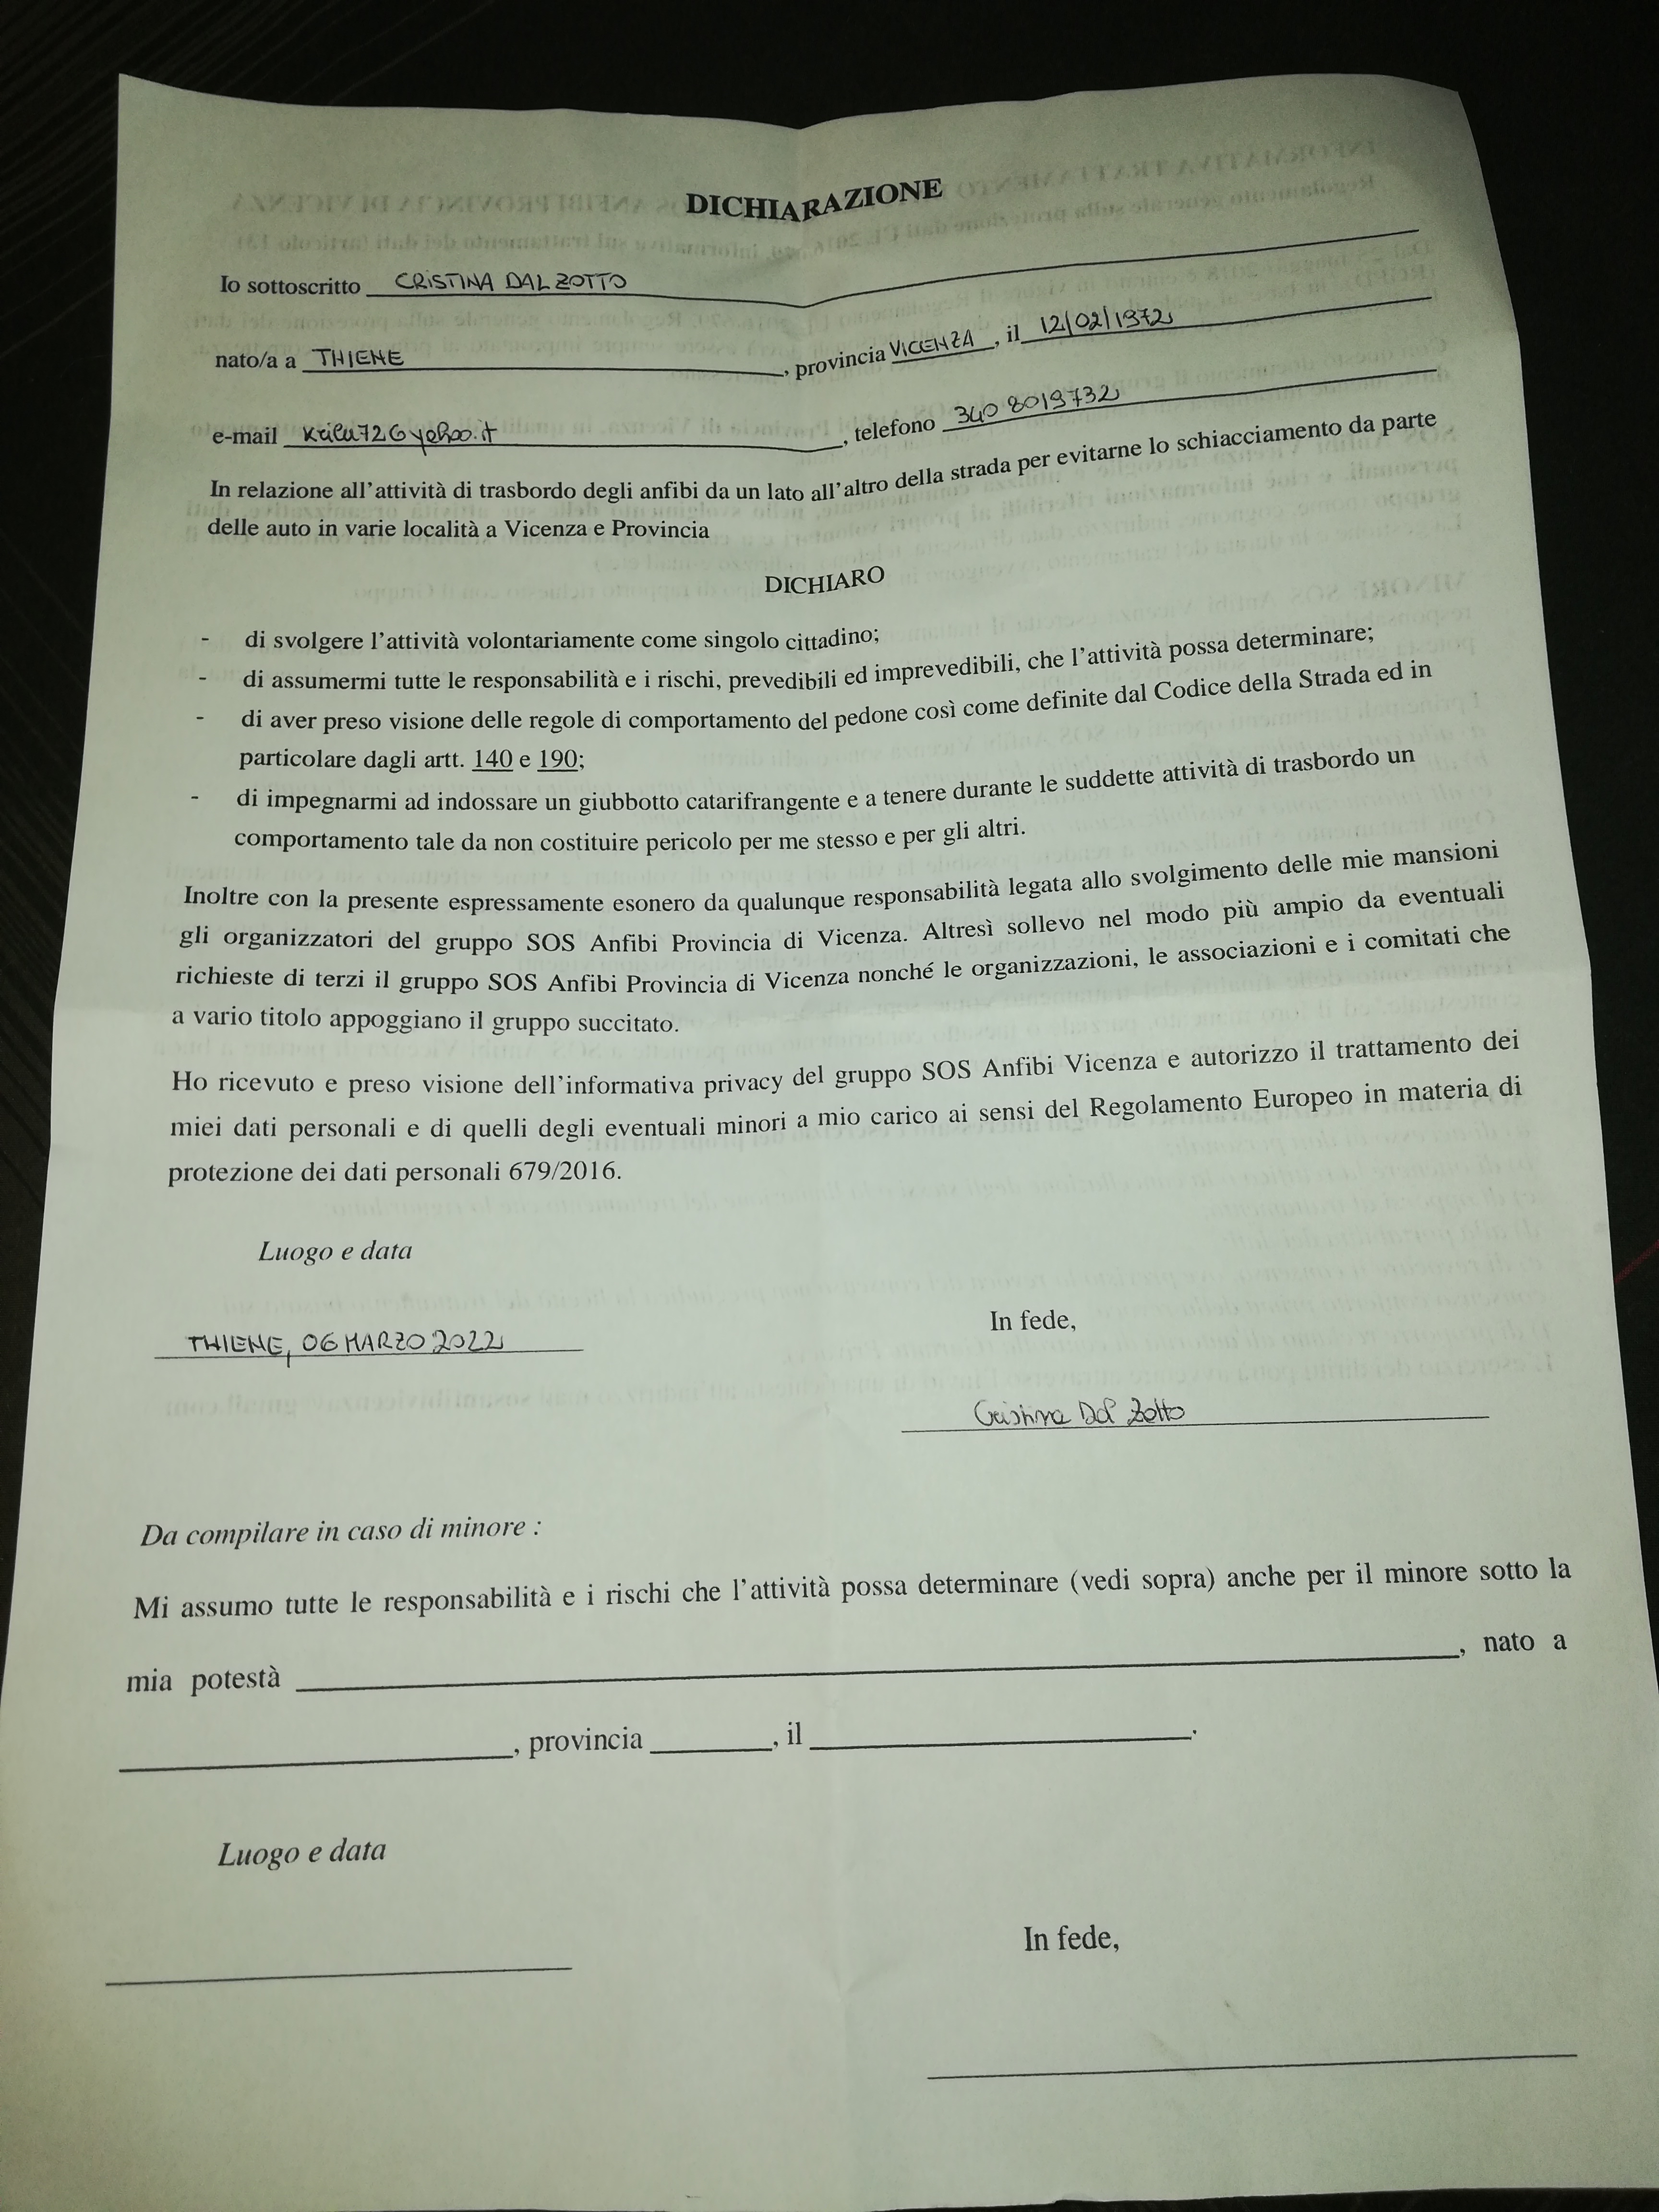 DICHIARAZIONE
Io sottoscritto CRISTINA DAL ZOTTO
nato/a a THIENE, provincia VICENZA, il 12/02/1972
e-mail yahoo.it, telefono 340 8019732
In relazione all'attività di trasbordo degli anfibi da un lato all'altro della strada per evitarne lo schiacciamento da parte
delle auto in varie località a Vicenza e Provincia
DICHIARO
- di svolgere l'attività volontariamente come singolo cittadino;
- di assumermi tutte le responsabilità e i rischi, prevedibili ed imprevedibili, che l'attività possa determinare;
- di aver preso visione delle regole di comportamento del pedone così come definite dal Codice della Strada ed in
particolare dagli artt. 140 e 190;
- di impegnarmi ad indossare un giubbotto catarifrangente e a tenere durante le suddette attività di trasbordo un
comportamento tale da non costituire pericolo per me stesso e per gli altri.
Inoltre con la presente espressamente esonero da qualunque responsabilità legata allo svolgimento delle mie mansioni
gli organizzatori del gruppo SOS Anfibi Provincia di Vicenza. Altresì sollevo nel modo più ampio da eventuali
richieste di terzi il gruppo SOS Anfibi Provincia di Vicenza nonché le organizzazioni, le associazioni e i comitati che
a vario titolo appoggiano il gruppo succitato.
Ho ricevuto e preso visione dell'informativa privacy del gruppo SOS Anfibi Vicenza e autorizzo il trattamento dei
miei dati personali e di quelli degli eventuali minori a mio carico ai sensi del Regolamento Europeo in materia di
protezione dei dati personali 679/2016.
Luogo e data
In fede,
THIENE, 06 MARZO 2022
Cristina Dal Zotto
Da compilare in caso di minore :
Mi assumo tutte le responsabilità e i rischi che l'attività possa determinare (vedi sopra) anche per il minore sotto la
mia potestà , nato a
, provincia , il .
Luogo e data
In fede,